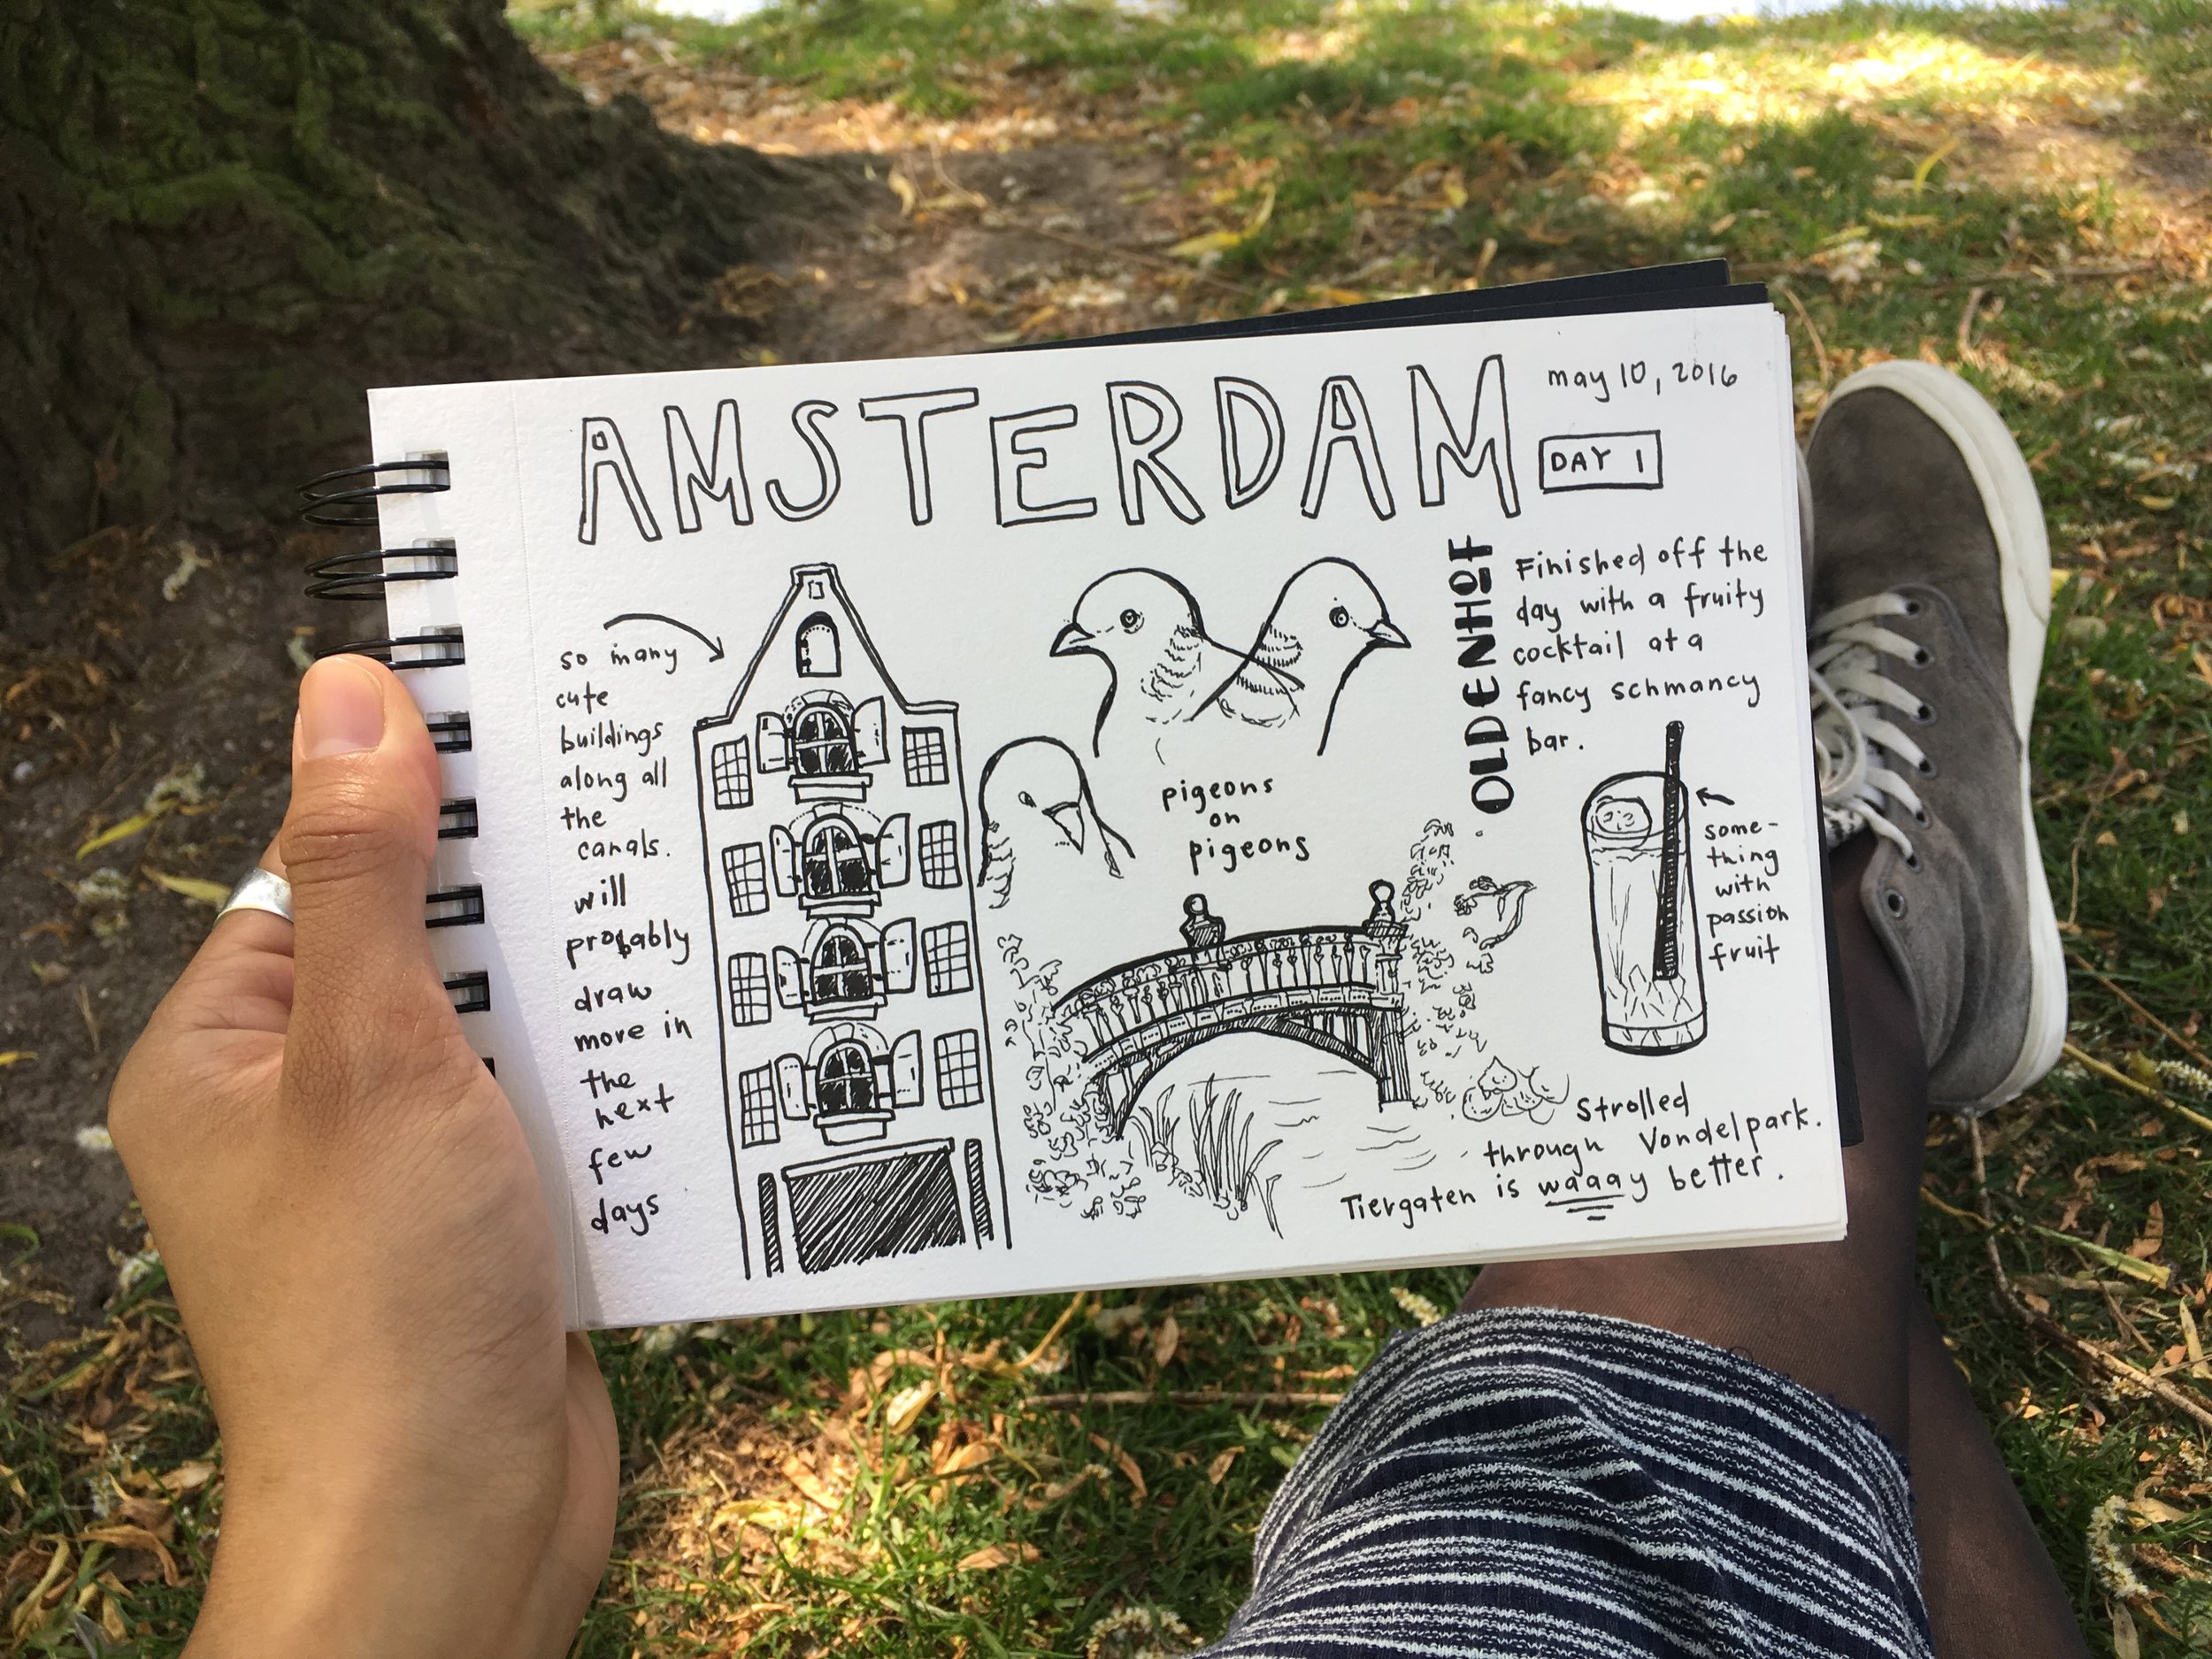 AMSTERDAM
may 10, 2016
DAY 1
so many
cute
buildings
along all
the
canals.
will
probably
draw
more in
the
next
few
days
pigeons
on
pigeons
OLDENHOF
Finished off the
day with a fruity
cocktail at a
fancy schmancy
bar.
some-
thing
with
passion
fruit
Strolled
through Vondelpark.
Tiergaten is waaay better.